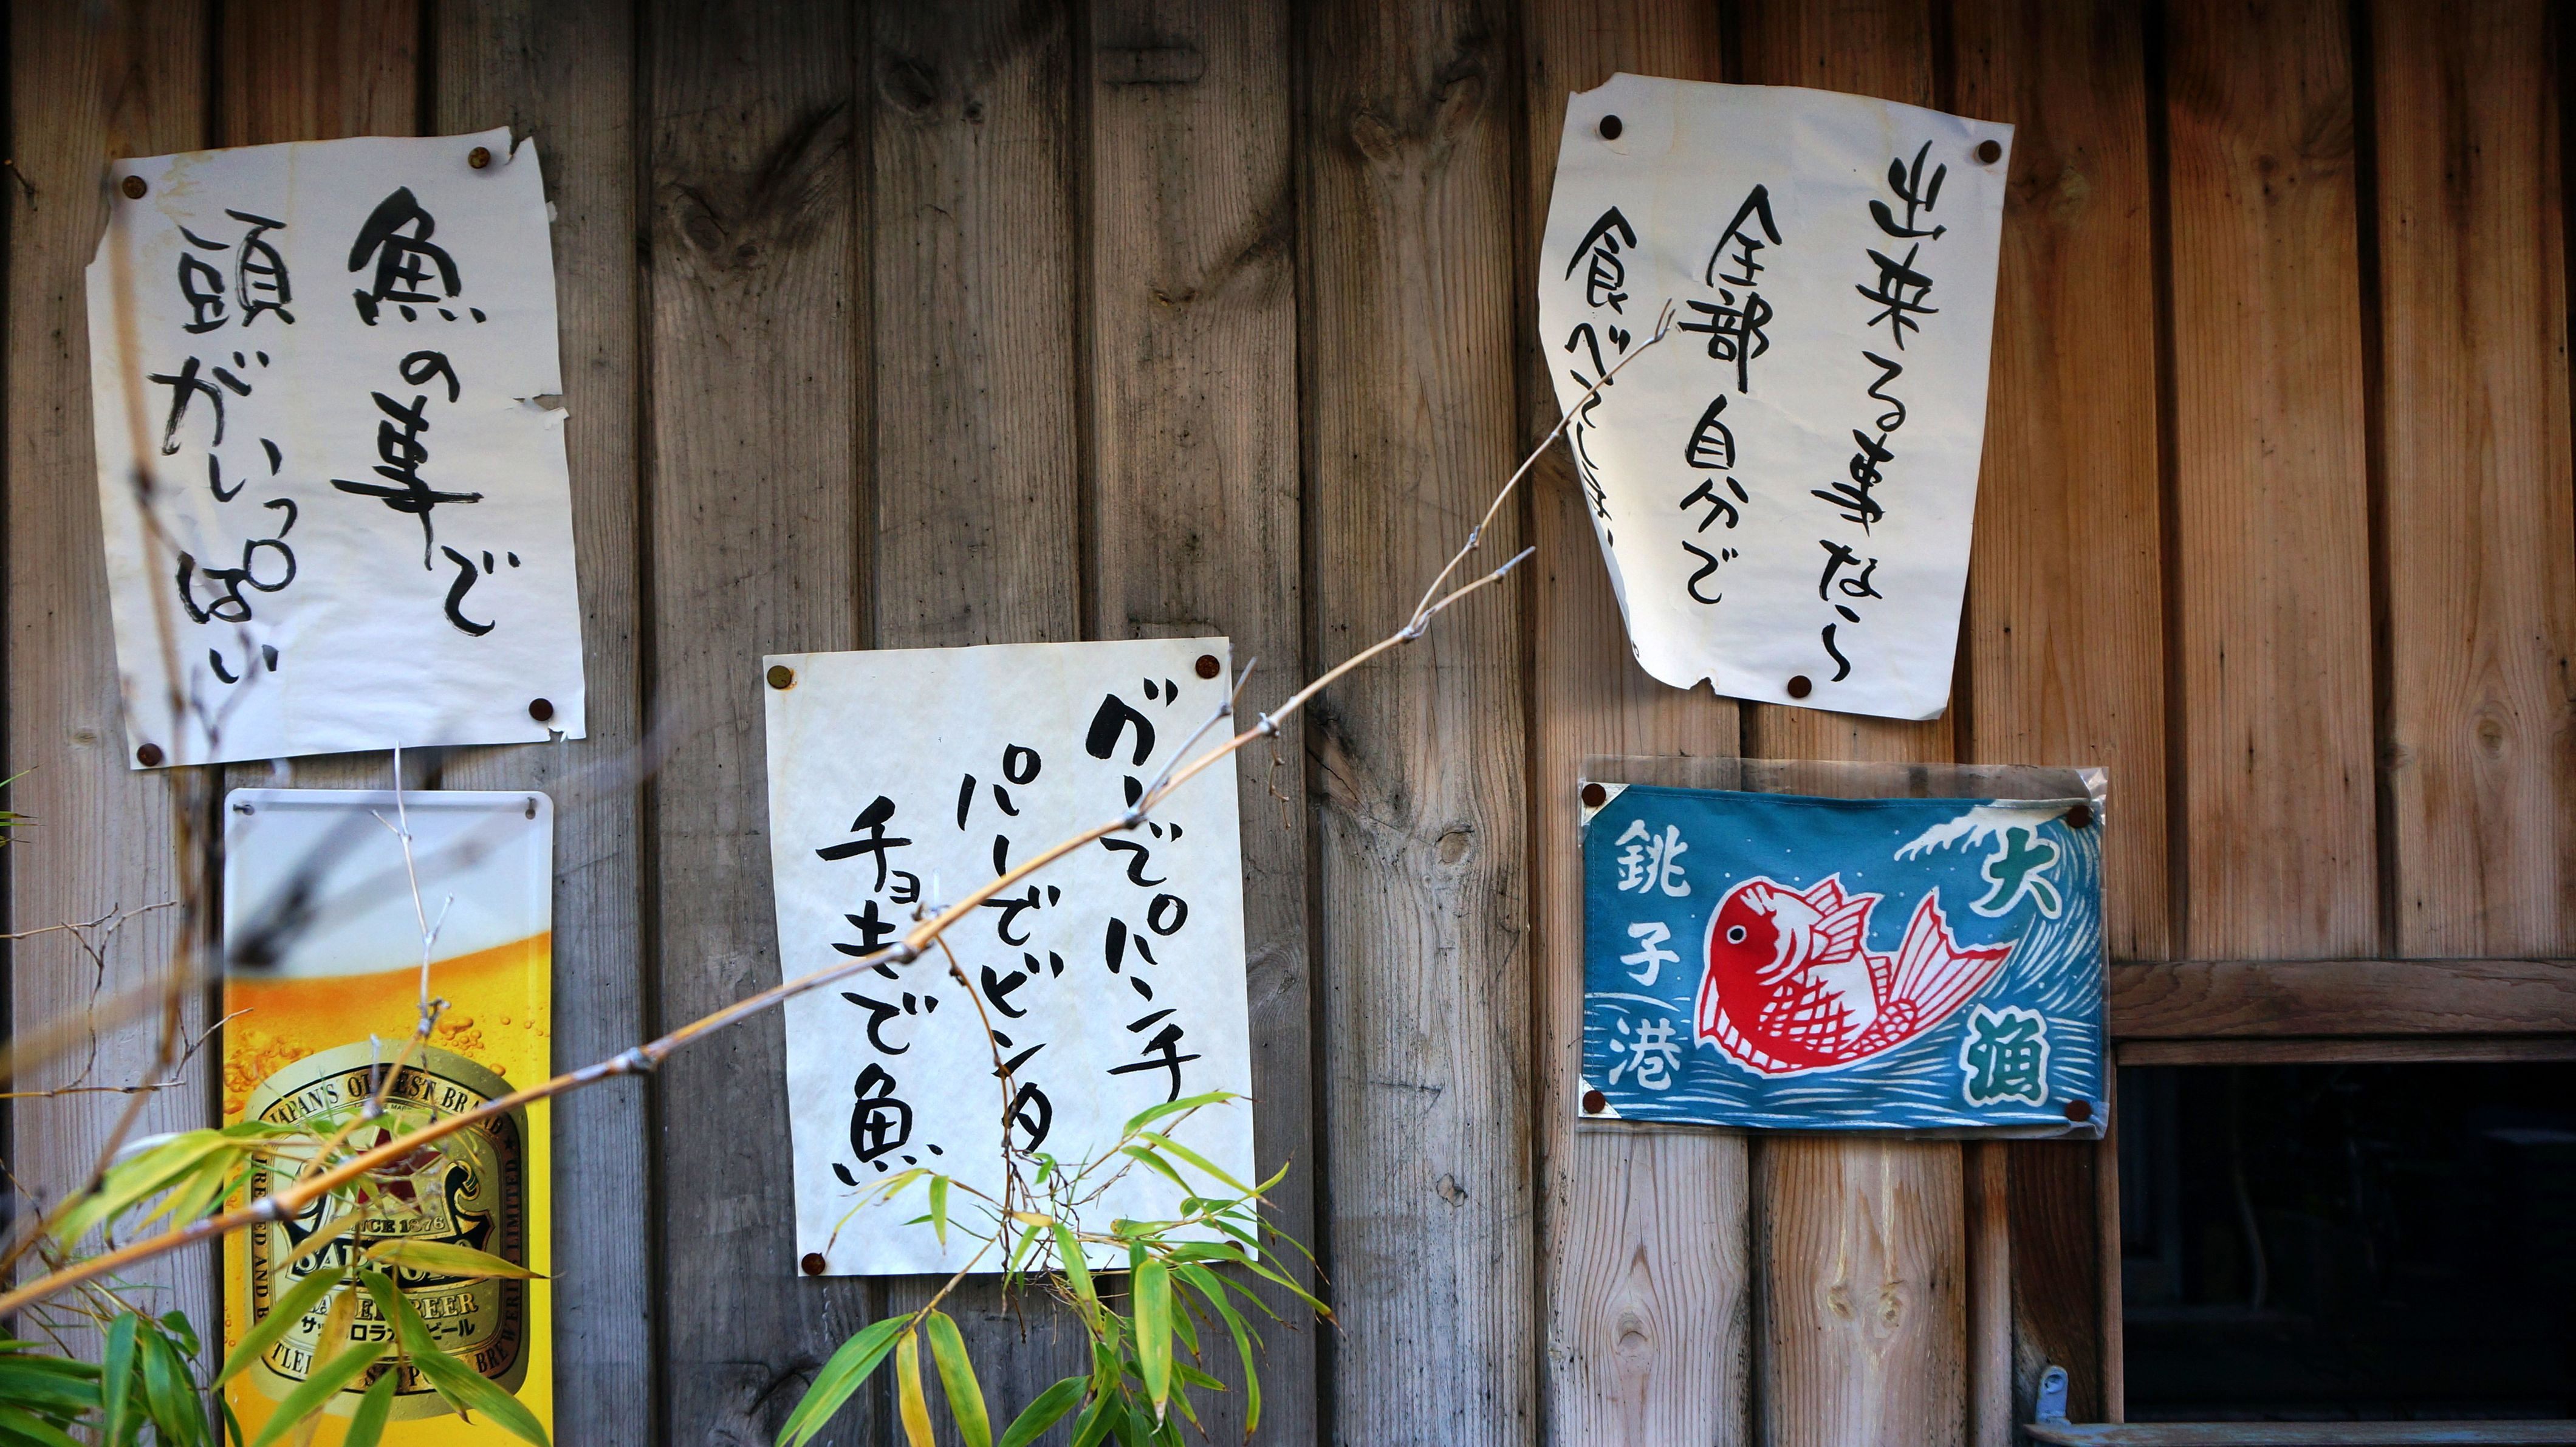 魚の事で
頭がいっぱい
グーでパンチ
パーでビンタ
チョキで魚
出来る事なら
全部自分で
食べてしまい
大漁
銚子港
JAPAN'S OLDEST BRAND
SINCE 1876
SAPPORO
LAGER BEER
サッポロラガービール